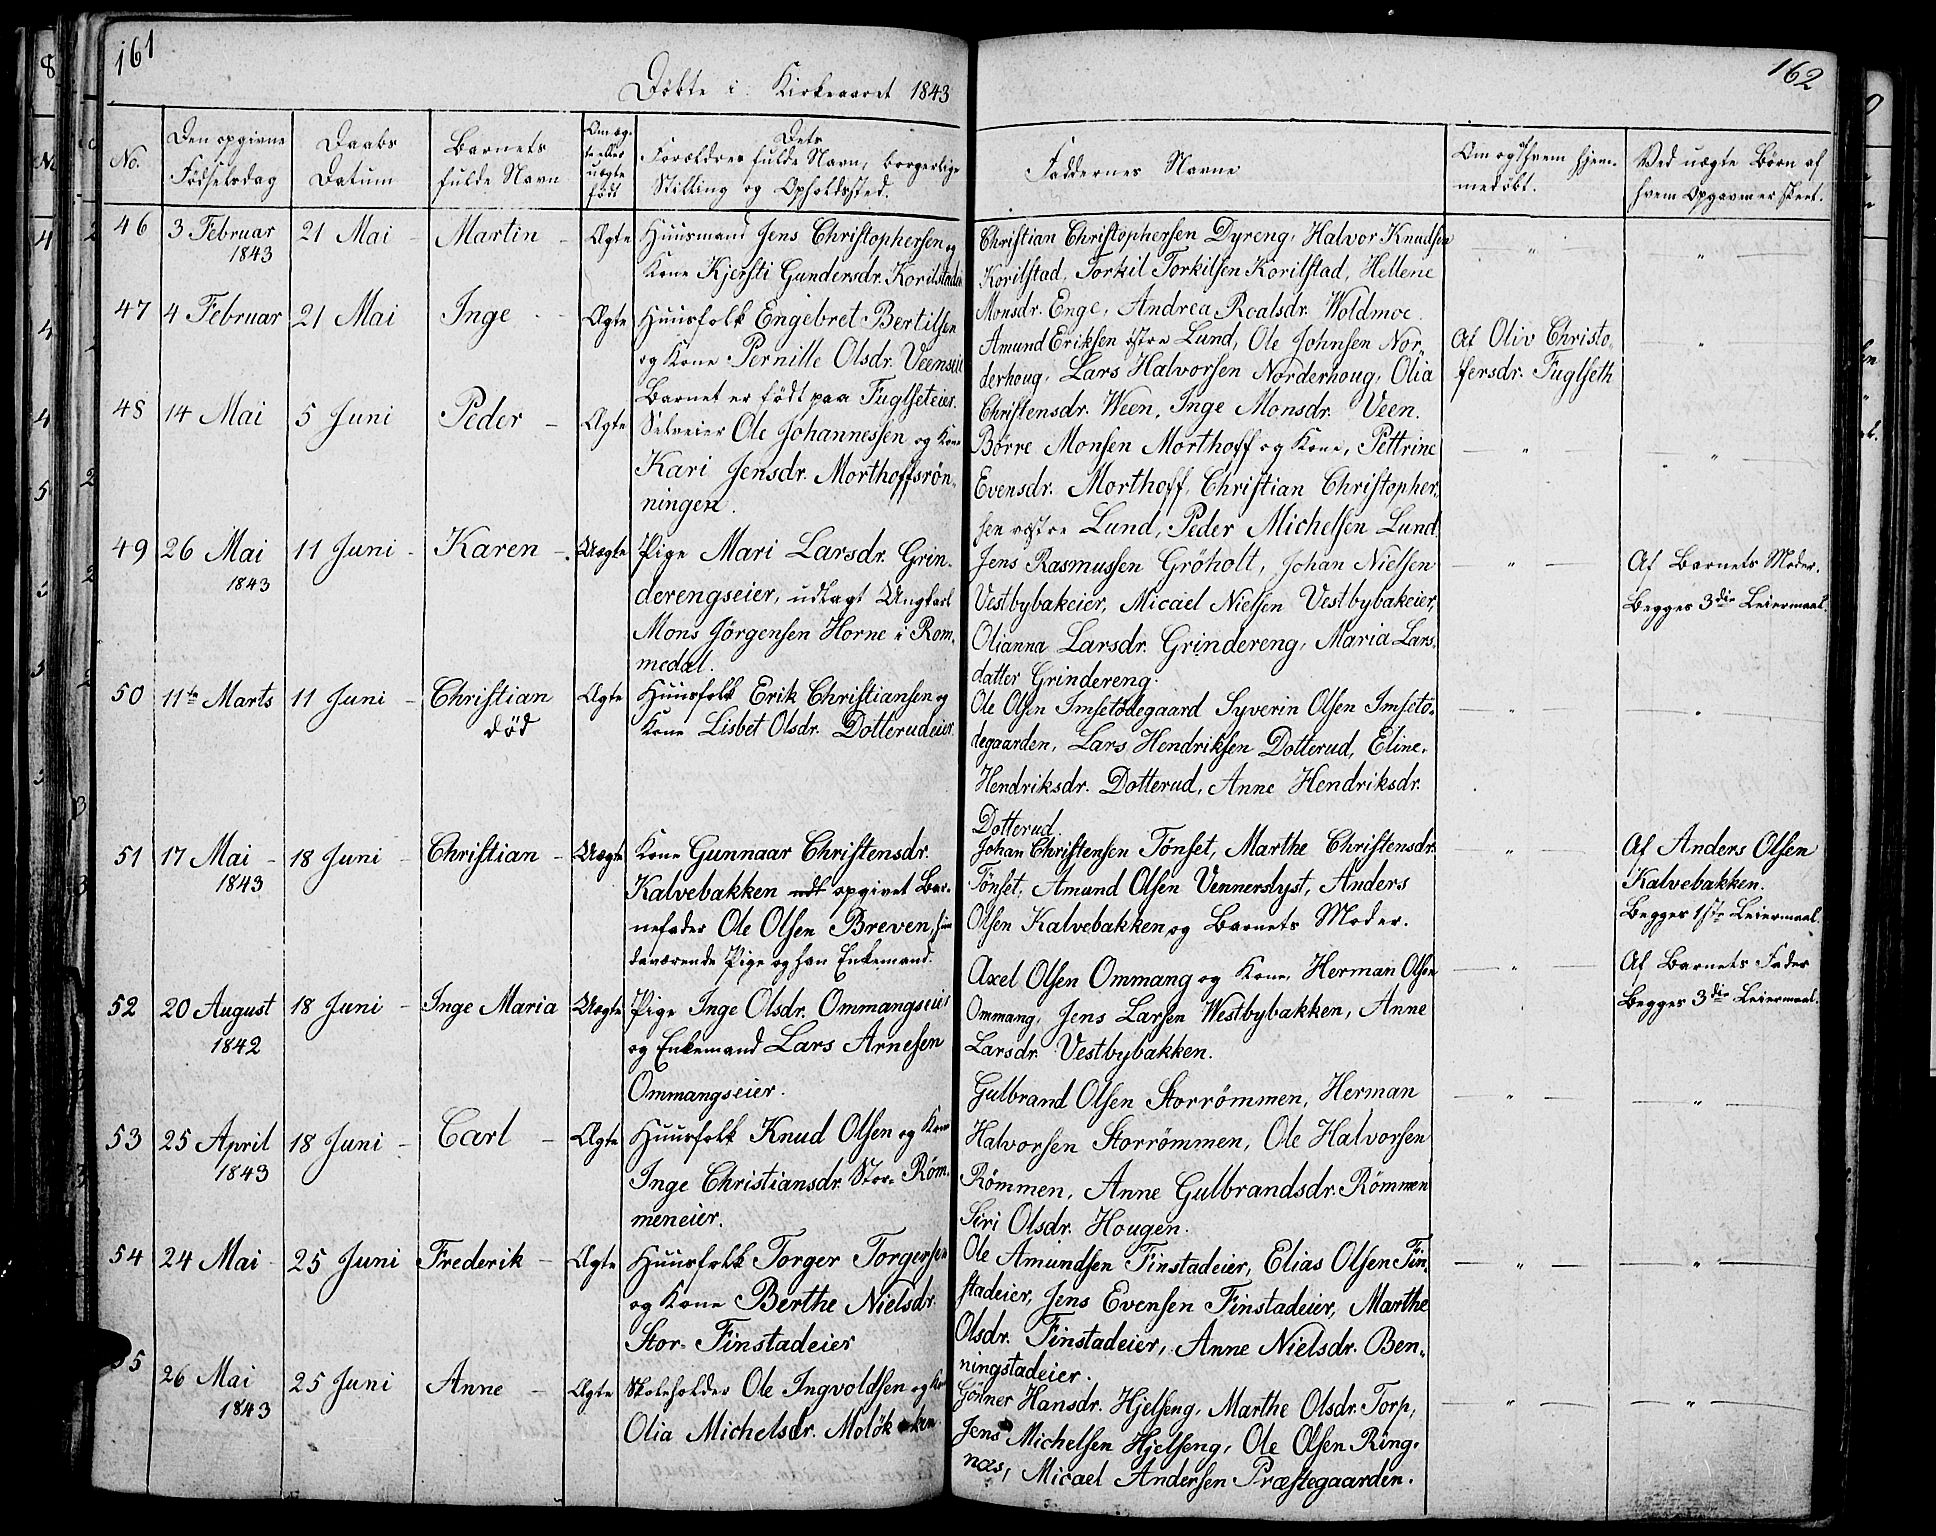 161
Döbte i Kirkeaaret 1843
No.
Den opgivne
Födselsdag
Daabs
Datum
Barnets
fulde Navn
Om æg-
te eller
uægte
födt
Dets
Forældres fulde Navn, borgerlige
Stilling og Opholdssted.
46
3 Februar
1843
21 Mai
Martin
Ægte
Huusmand Jens Christophersen og
Kone Kjersti Gundersdr. Korilstadeie
47
4 Februar
21 Mai
Inge
Ægte
Huusfolk Engebret Bertilsen
og Kone Pernille Olsdr. Veenseie
Barnet er födt paa Fuglseteier.
48
14 Mai
5 Juni
Peder
Ægte
Selveier Ole Johannessen og Kone
Kari Jensdr. Morthoffsrön-
ningen.
49
26 Mai
1843
11 Juni
Karen
Uægte
Pige Mari Larsdr. Grin-
derengseier, udlagt Ungkarl
Mons Jörgensen Horne i Rom-
medal.
50
11te Marts
11 Juni
Christian
död
Ægte
Huusfolk Erik Christiansen og
Kone Lisbet Olsdr. Dotterudeier.
51
17 Mai
1843
18 Juni
Christian
Uægte
Kone Gunnaar Christensdr.
Kalvebakken udl opgivet Bar-
nefader Ole Olsen Breven, hun
daværende Pige og han Enkemand.
52
20 August
1842
18 Juni
Inge Maria
Uægte
Pige Inge Olsdr. Ommangseier
og Enkemand Lars Arnesen
Ommangseier.
53
25 April
1843
18 Juni
Carl
Ægte
Huusfolk Knud Olsen og Kone
Inge Christiansdr. Stor-Röm-
meneier.
54
24 Mai
25 Juni
Frederik
Ægte
Huusfolk Torger Torgersen
og Kone Berthe Nielsdr.
Stor-Finstadeier
55
26 Mai
1843
25 Juni
Anne
Ægte
Skoleholder Ole Ingvoldsen og Kone
Olia Michelsdr. Molökken.
162
Faddernes Navne
Om og af hvem hjem-
medöbt.
Ved uægte Börn af
hvem Opgaven er skeet.
Christian Christophersen Dyreng, Halvor Knudsen
Korilstad, Torkil Torkilsen Korilstad, Hellene
Monsdr. Enge, Andrea Roalsdr. Woldmoe.
Amund Eriksen östre Lund, Ole Johnsen Nor-
derhoug, Lars Halvorsen Norderhoug, Olia
Christensdr. Ween, Inge Monsdr. Veen.
Af Oliv Christo-
fersdr. Fuglseth
Börre Monsen Morthoff og Kone, Pettrine
Evensdr. Morthoff, Christian Christopher-
sen östre Lund, Peder Michelsen Lund
Jens Rasmussen Gröholt, Johan Nielsen
Vestbybakeier, Micael Nielsen Vestbybakeier,
Olianna Larsdr. Grindereng, Maria Lars-
datter Grindereng.
Af Barnets Moder.
Begges 3die Leiermaal.
Ole Olsen Imsetödegaard Syverin Olsen Imsetö-
degaarden, Lars Hendriksen Dotterud, Eline
Hendriksdr. Dotterud, Anne Hendriksdr.
Dotterud.
Johan Christensen Tönset, Marthe Christensdr.
Tönset, Amund Olsen Vennerslyst, Anders
Olsen Kalvebakken og Barnets Moder.
Af Anders Olsen
Kalvebakken.
Begges 1ste Leiermaal.
Axel Olsen Ommang og Kone, Herman Olsen
Ommang, Jens Larsen Westbybakken, Anne
Larsdr. Vestbybakken.
Af Barnets Fader
Begges 3die Leiermaal.
Gulbrand Olsen Storrömmen, Herman
Halvorsen Storrömmen, Ole Halvorsen
Römmen, Anne Gulbrandsdr. Römmen
Siri Olsdr. Hougen.
Ole Amundsen Finstadeier, Elias Olsen Fin-
stadeier, Jens Evensen Finstadeier, Marthe
Olsdr. Finstadeier, Anne Nielsdr. Ben-
ningstadeier.
Hansdr. Hjelseng, Marthe Olsdr. Torp,
Jens Michelsen Hjelseng, Ole Olsen Ring-
næs, Micael Andersen Præstegaarden.